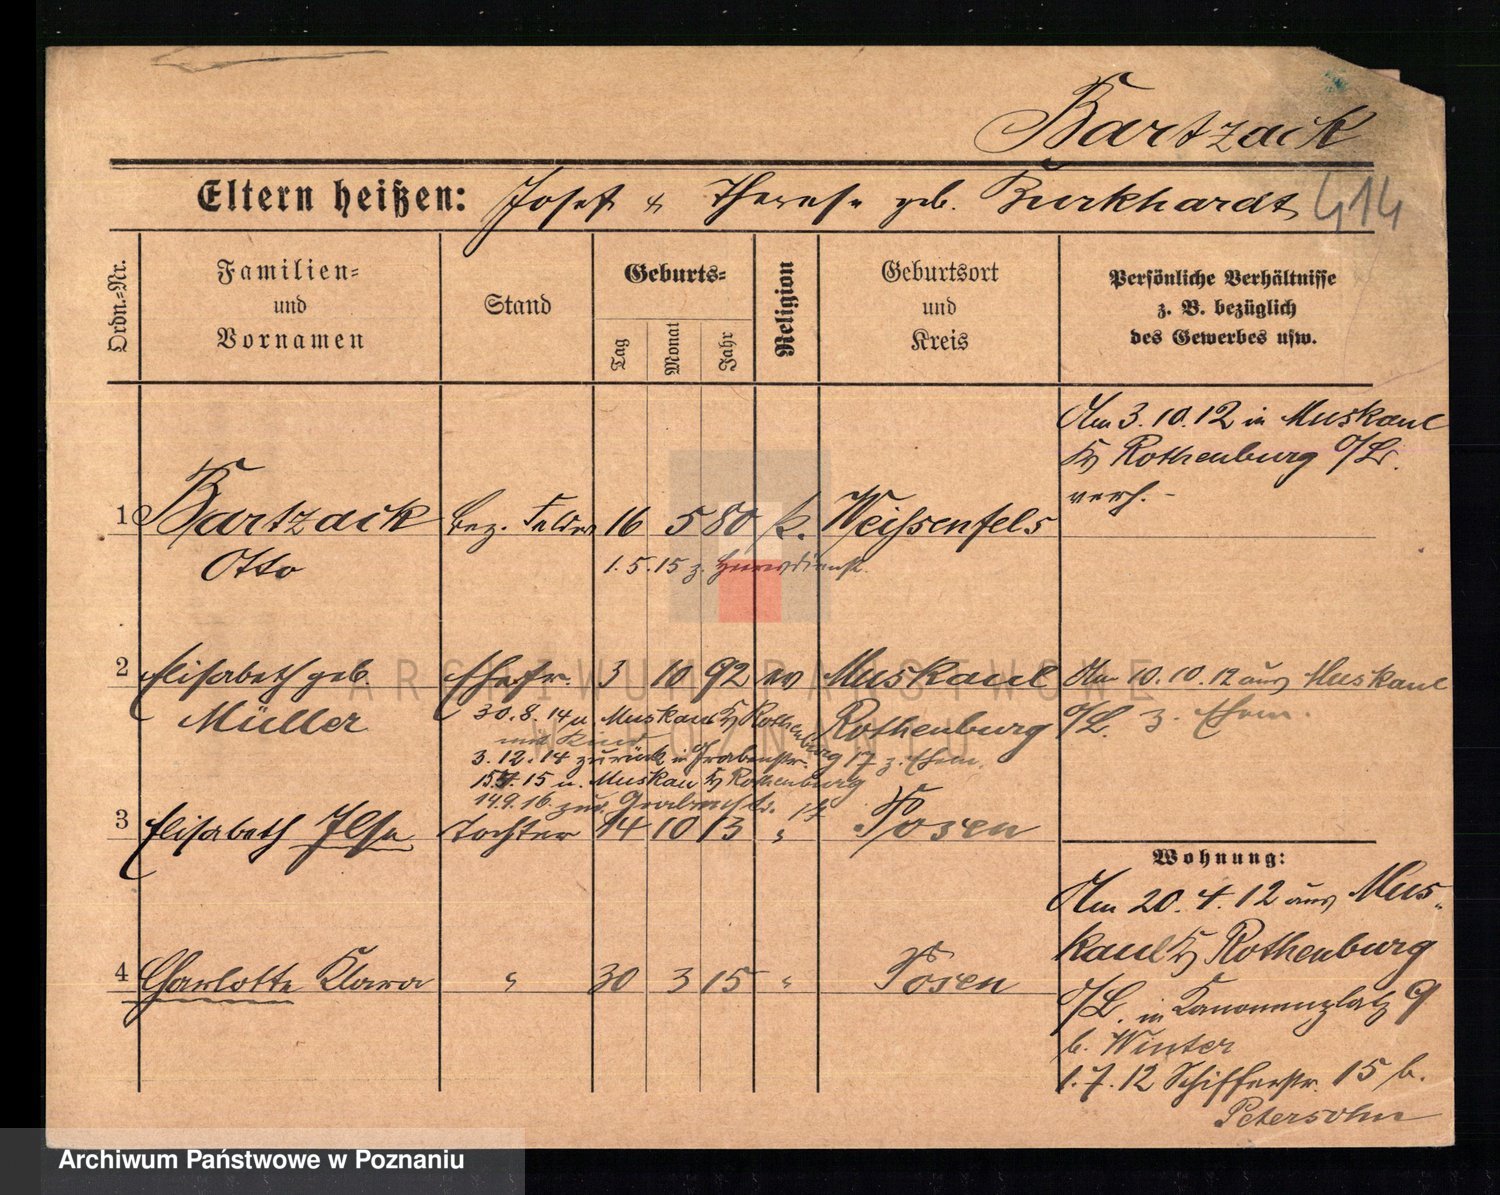 Bartzack
Eltern heißen: Josef & Therese geb. Burkhardt 414
Ordn.-Nr.
Familien- und Vornamen
Stand
Geburts-
Tag
Monat
Jahr
Religion
Geburtsort und Kreis
Persönliche Verhältnisse
z. B. bezüglich
des Gewerbes usw.
Am 3.10.12 in Muskau
Rothenburg O/L.
verh. -
1 Bartzack bez. 16 5 80 k. Weißenfels
Otto
1.5.15 z. Heeresdienst.
2 Elisabeth geb. Ehefr. 3 10 92 ev Muskau Am 10.10.12 aus Muskau
Müller Rothenburg O/L. z. Ehem.
30.8.14 n. Muskau Kr Rothenburg
mit Kind
3.12.14 zurück in Grabenstr. 17 z. Ehem.
15 n. Muskau Kr Rothenburg
14.9.16. zur. Grabenstr. 17
3 Elisabeth Ilse Tochter 14 10 13 " Posen
Wohnung:
Am 20.4.12 aus Mus-
kau Kr Rothenburg
4 Charlotte Klara " 30 3 15 " Posen
O/L. in Kanonenplatz 9
b. Winter
1.7.12 Schifferstr. 15 b.
Petersohn
ARCHIWUM PAŃSTWOWE
W POZNANIU
Archiwum Państwowe w Poznaniu